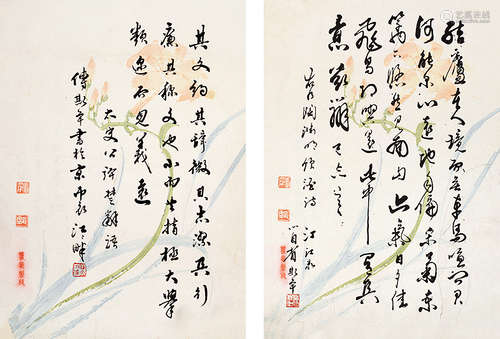 結廬在人境而無車馬喧問君
何能尔心遠地自偏采菊東
籬下悠然見南山山氣日夕佳
飛鳥相與還此中有真
意欲辯已忘言
右陶淵明飲酒詩
斯年
其文約其辭微其志潔其行
廉其稱文也小而其指極大舉
類迩而見義遠
太史公評楚辭語
傅斯年書於京師江畔